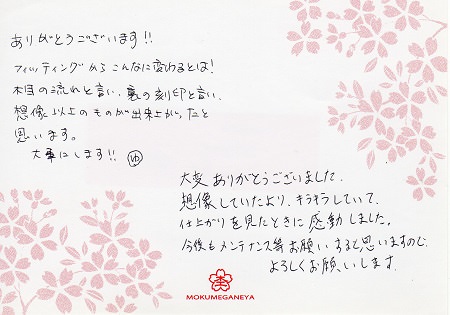 ありがとうございます!!
フィッティングからこんなに変わるとは!
木目の流れと言い、裏の刻印と言い、
想像以上のものが出来上がったと
思います。
大事にします!! ゆ
大変ありがとうございました。
想像していたより、キラキラしていて、
仕上がりを見たときに感動しました。
今後もメンテナンス等お願いすると思いますので、
よろしくお願いします。
MOKUMEGANEYA